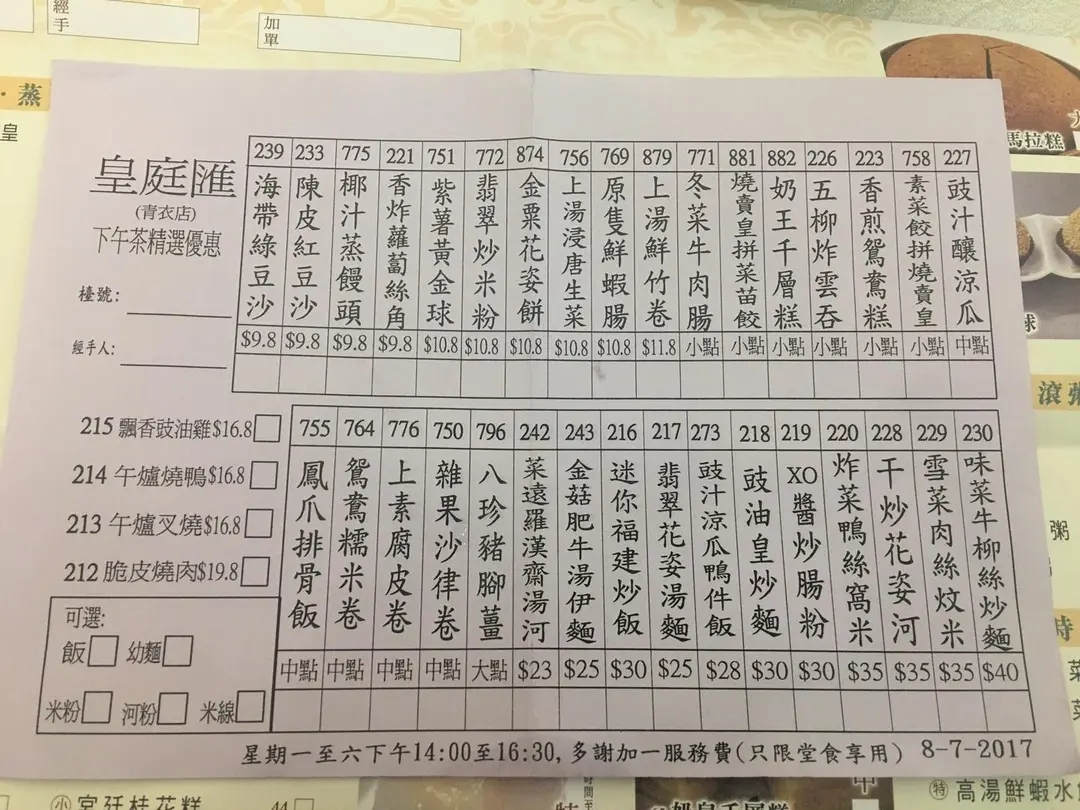 經手
加單
蒸
皇
馬拉糕
球
滾粥
粥
時
菜
皇庭匯
(青衣店)
下午茶精選優惠
檯號:
經手人:
239 233 775 221 751 772 874 756 769 879 771 881 882 226 223 758 227
海帶綠豆沙
陳皮紅豆沙
椰汁蒸饅頭
香炸蘿蔔絲角
紫薯黃金球
翡翠炒米粉
金粟花姿餅
上湯浸唐生菜
原隻鮮蝦腸
上湯鮮竹卷
冬菜牛肉腸
燒賣皇拼菜苗餃
奶王千層糕
五柳炸雲吞
香煎鴛鴦糕
素菜餃拼燒賣皇
豉汁釀涼瓜
$9.8 $9.8 $9.8 $9.8 $10.8 $10.8 $10.8 $10.8 $10.8 $11.8 小點 小點 小點 小點 小點 小點 中點
215 飄香豉油雞$16.8
214 午爐燒鴨$16.8
213 午爐叉燒$16.8
212 脆皮燒肉$19.8
可選:
飯 幼麵
米粉 河粉 米線
755 764 776 750 796 242 243 216 217 273 218 219 220 228 229 230
鳳爪排骨飯
鴛鴦糯米卷
上素腐皮卷
雜果沙律卷
八珍豬腳薑
菜遠羅漢齋湯河
金菇肥牛湯伊麵
迷你福建炒飯
翡翠花姿湯麵
豉汁涼瓜鴨件飯
豉油皇炒麵
XO醬炒腸粉
炸菜鴨絲窩米
干炒花姿河
雪菜肉絲炆米
味菜牛柳絲炒麵
中點 中點 中點 中點 大點 $23 $25 $30 $25 $28 $30 $30 $35 $35 $35 $40
星期一至六下午14:00至16:30,多謝加一服務費(只限堂食享用) 8-7-2017
小 宮廷桂花糕 44
特
特 高湯鮮蝦水